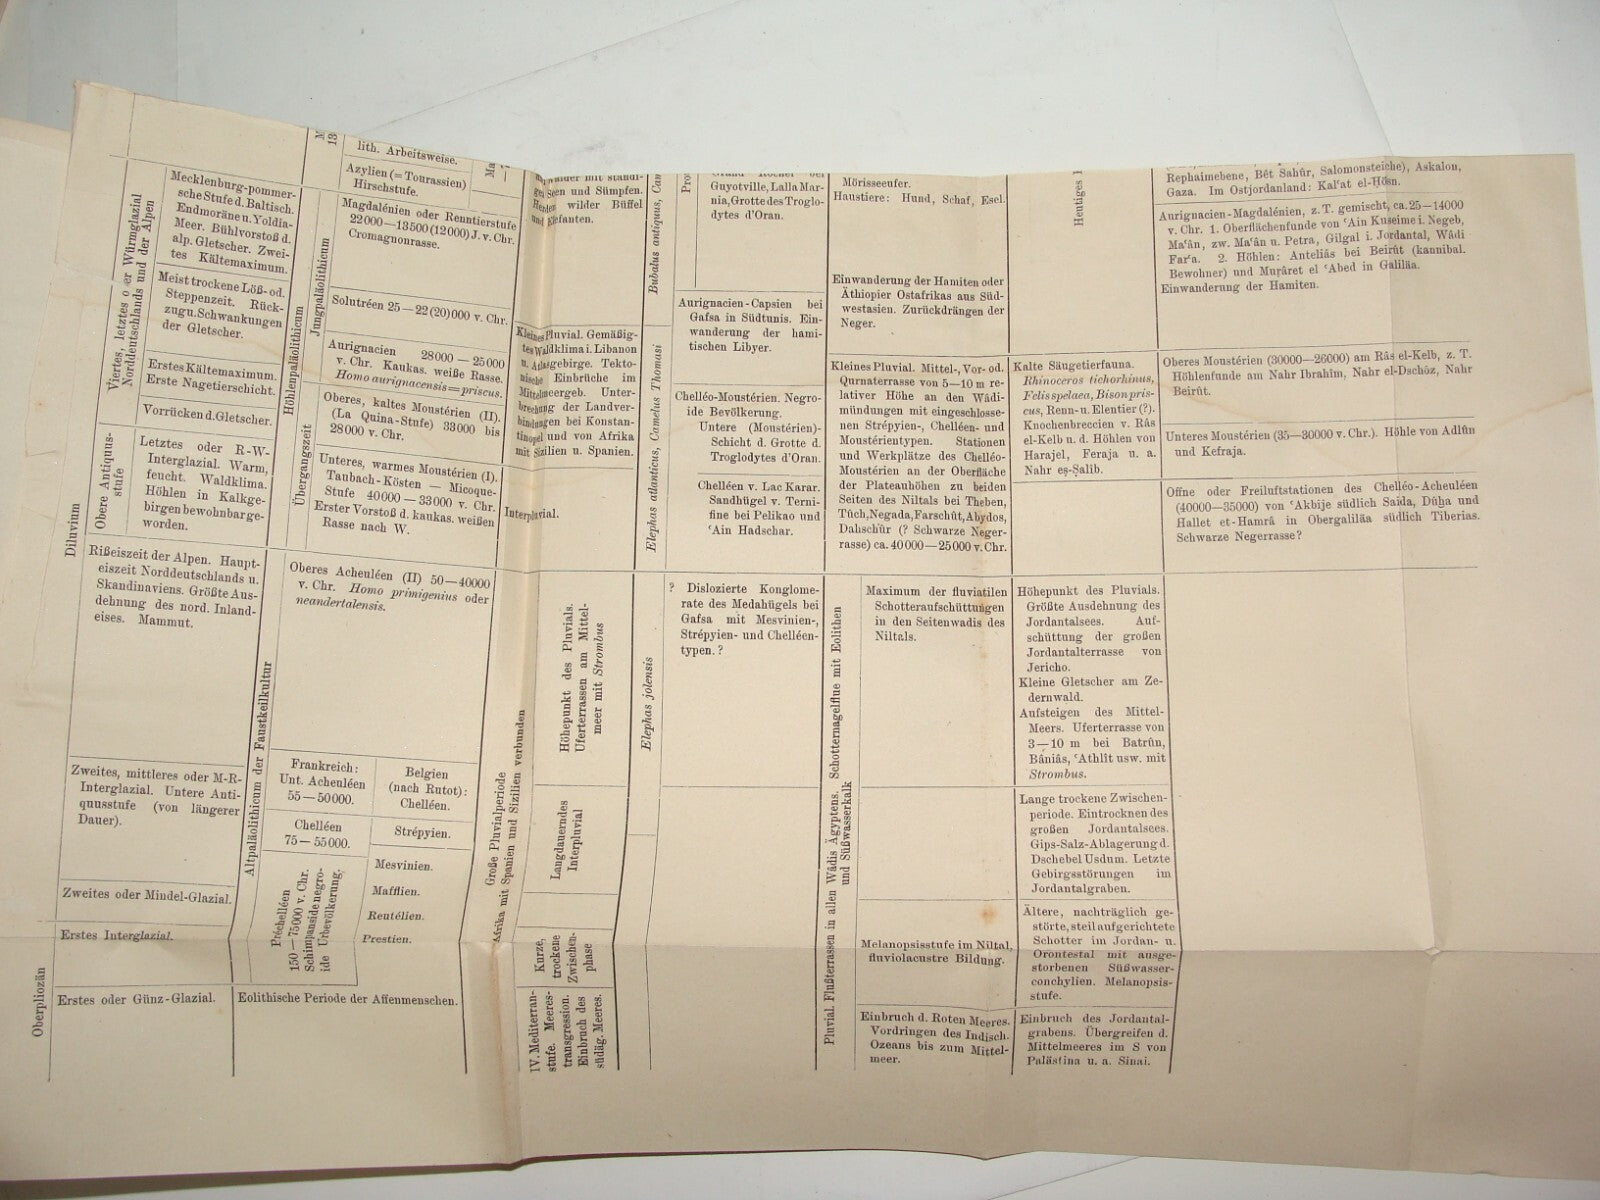 Diluvium
Oberpliozän
Viertes, letztes oder Würmglazial
Norddeutschlands und der Alpen
Obere Antiquus-
stufe
Mecklenburg-pommer-
sche Stufe d. Baltisch.
Endmoräne u. Yoldia-
Meer. Bühlvorstoß d.
alp. Gletscher. Zwei-
tes Kältemaximum.
Meist trockene Löß- od.
Steppenzeit. Rück-
zugu. Schwankungen
der Gletscher.
Erstes Kältemaximum.
Erste Nagetierschicht.
Vorrücken d. Gletscher.
Letztes oder R-W-
Interglazial. Warm,
feucht. Waldklima.
Höhlen in Kalkge-
birgen bewohnbar ge-
worden.
Rißeiszeit der Alpen. Haupt-
eiszeit Norddeutschlands u.
Skandinaviens. Größte Aus-
dehnung des nord. Inland-
eises. Mammut.
Zweites, mittleres oder M-R-
Interglazial. Untere Anti-
quusstufe (von längerer
Dauer).
Zweites oder Mindel-Glazial.
Erstes Interglazial.
Erstes oder Günz-Glazial.
Höhlenpaläolithicum
Jungpaläolithicum
Übergangszeit
Altpaläolithicum der Faustkeilkultur
13
lith. Arbeitsweise.
Azylien (= Tourassien)
Hirschstufe.
Ma
Magdalénien oder Renntierstufe
22000—13500 (12000) J. v. Chr.
Cromagnonrasse.
Solutréen 25—22 (20) 000 v. Chr.
Aurignacien 28000—25000
v. Chr. Kaukas. weiße Rasse.
Homo aurignacensis = priscus.
Oberes, kaltes Moustérien (II).
(La Quina-Stufe) 33000 bis
28000 v. Chr.
Unteres, warmes Moustérien (I).
Taubach-Kösten — Micoque-
Stufe 40000—33000 v. Chr.
Erster Vorstoß d. kaukas. weißen
Rasse nach W.
Oberes Acheuléen (II) 50—40000
v. Chr. Homo primigenius oder
neandertalensis.
Frankreich:
Unt. Acheuléen
55—50000.
Belgien
(nach Rutot):
Chelléen.
Chelléen
75—55000.
Strépyien.
Préchelléen
150—75000 v. Chr.
Schimpanside negro-
ide Urbevölkerung.
Mesvinien.
Mafflien.
Reutélien.
Prestien.
Eolithische Periode der Affenmenschen.
Große Pluvialperiode
Afrika mit Spanien und Sizilien verbunden
wälder mit ständi-
gen Seen und Sümpfen.
Herden wilder Büffel
und Elefanten.
Kleines Pluvial. Gemäßig-
tes Waldklima i. Libanon
u. Atlasgebirge. Tekto-
nische Einbrüche im
Mittelmeergeb. Unter-
brechung der Landver-
bindungen bei Konstan-
tinopel und von Afrika
mit Sizilien u. Spanien.
Interpluvial.
Höhepunkt des Pluvials.
Uferterrassen am Mittel-
meer mit Strombus
Langdauerndes
Interpluvial
Kurze,
trockene
Zwischen-
phase
IV. Mediterran-
stufe. Meeres-
transgression.
Einbruch des
südäg. Meeres.
Elephas atlanticus, Camelus Thomasi
Bubalus antiquus, Cam
Elephas jolensis
Pro
Grand Rocher bei
Guyotville, Lalla Mar-
nia, Grotte des Troglo-
dytes d'Oran.
Aurignacien-Capsien bei
Gafsa in Südtunis. Ein-
wanderung der hami-
tischen Libyer.
Chelléo-Moustérien. Negro-
ide Bevölkerung.
Untere (Moustérien)-
Schicht d. Grotte d.
Troglodytes d'Oran.
Chelléen v. Lac Karar.
Sandhügel v. Terni-
fine bei Pelikao und
ʿAin Hadschar.
? Dislozierte Konglome-
rate des Medahügels bei
Gafsa mit Mesvinien-,
Strépyien- und Chelléen-
typen. ?
Pluvial. Flußterrassen in allen Wâdis Ägyptens. Schotternagelflue mit Eolithen
und Süßwasserkalk
Mörisseeufer.
Haustiere: Hund, Schaf, Esel.
Einwanderung der Hamiten oder
Äthiopier Ostafrikas aus Süd-
westasien. Zurückdrängen der
Neger.
Kleines Pluvial. Mittel-, Vor- od.
Qurnaterrasse von 5—10 m re-
lativer Höhe an den Wâdi-
mündungen mit eingeschlosse-
nen Strépyien-, Chelléen- und
Moustérientypen. Stationen
und Werkplätze des Chelléo-
Moustérien an der Oberfläche
der Plateauhöhen zu beiden
Seiten des Niltals bei Theben,
Tûch, Negada, Farschût, Abydos,
Dahschûr (? Schwarze Neger-
rasse) ca. 40000—25000 v. Chr.
Maximum der fluviatilen
Schotteraufschüttungen
in den Seitenwadis des
Niltals.
Melanopsisstufe im Niltal,
fluviolacustre Bildung.
Einbruch d. Roten Meeres.
Vordringen des Indisch.
Ozeans bis zum Mittel-
meer.
Heutiges
Kalte Säugetierfauna.
Rhinoceros tichorhinus,
Felis spelaea, Bison pris-
cus, Renn- u. Elentier (?).
Knochenbreccien v. Râs
el-Kelb u. d. Höhlen von
Harajel, Feraja u. a.
Nahr eṣ-Ṣalib.
Höhepunkt des Pluvials.
Größte Ausdehnung des
Jordantalsees. Auf-
schüttung der großen
Jordantalterrasse von
Jericho.
Kleine Gletscher am Ze-
dernwald.
Aufsteigen des Mittel-
Meers. Uferterrasse von
3—10 m bei Batrûn,
Bâniâs, ʿAthlît usw. mit
Strombus.
Lange trockene Zwischen-
periode. Eintrocknen des
großen Jordantalsees.
Gips-Salz-Ablagerung d.
Dschebel Usdum. Letzte
Gebirgsstörungen im
Jordantalgraben.
Ältere, nachträglich ge-
störte, steil aufgerichtete
Schotter im Jordan- u.
Orontestal mit ausge-
storbenen Süßwasser-
conchylien. Melanopsis-
stufe.
Einbruch des Jordantal-
grabens. Übergreifen d.
Mittelmeeres im S von
Palästina u. a. Sinai.
Rephaimebene, Bêt Sahûr, Salomonsteiche), Askalon,
Gaza. Im Ostjordanland: Kalʿat el-Hösn.
Aurignacien-Magdalénien, z. T. gemischt, ca. 25—14000
v. Chr. 1. Oberflächenfunde von ʿAin Kuseime i. Negeb,
Maʿân, zw. Maʿân u. Petra, Gilgal i. Jordantal, Wâdi
Farʿa. 2. Höhlen: Anteliâs bei Beirût (kannibal.
Bewohner) und Murâret el ʿAbed in Galiläa.
Einwanderung der Hamiten.
Oberes Moustérien (30000—26000) am Râs el-Kelb, z. T.
Höhlenfunde am Nahr Ibrahim, Nahr el-Dschôz, Nahr
Beirût.
Unteres Moustérien (35—30000 v. Chr.). Höhle von Adlûn
und Kefraja.
Offne oder Freiluftstationen des Chelléo-Acheuléen
(40000—35000) von ʿAkbije südlich Saida, Dûḥa und
Hallet et-Hamrâ in Obergaliläa südlich Tiberias.
Schwarze Negerrasse?